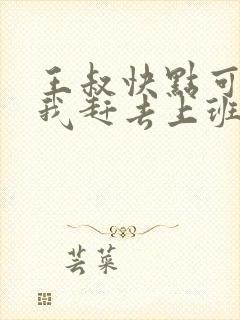 王叔快點可
我赶去上班
芸菜